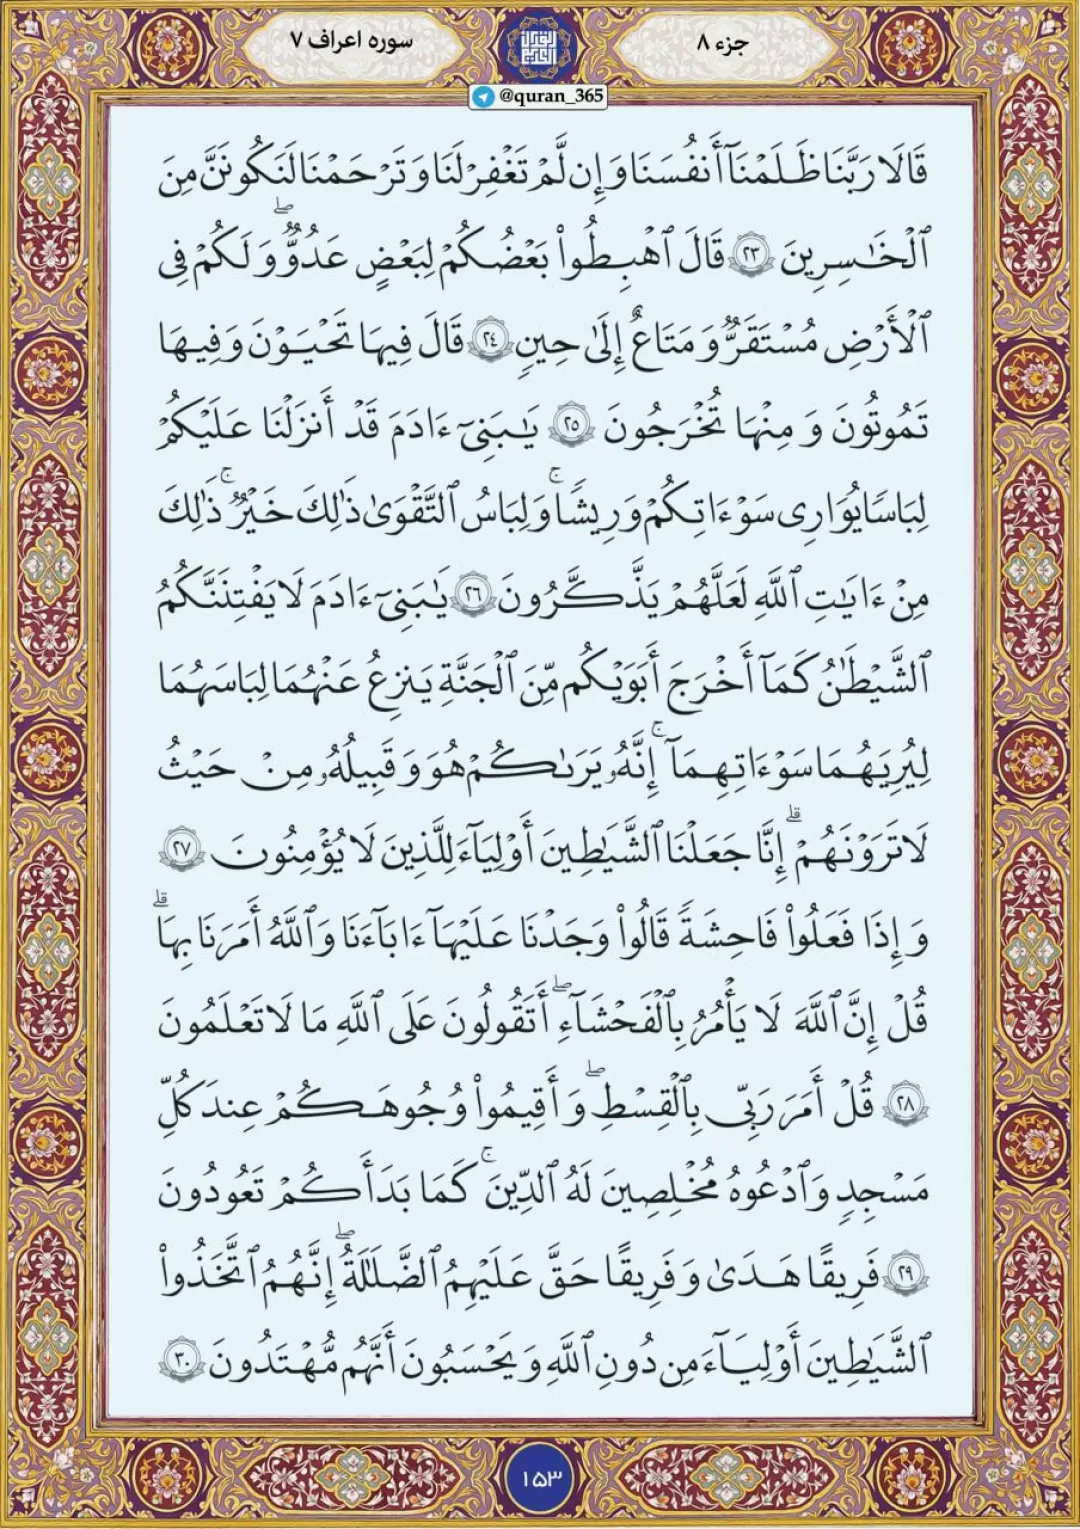 جزء ۸
سوره اعراف ۷
@quran_365
قَالَا رَبَّنَا ظَلَمْنَآ أَنفُسَنَا وَإِن لَّمْ تَغْفِرْ لَنَا وَتَرْحَمْنَا لَنَكُونَنَّ مِنَ
ٱلْخَٰسِرِينَ ۝٢٣ قَالَ ٱهْبِطُوا۟ بَعْضُكُمْ لِبَعْضٍ عَدُوٌّۖ وَلَكُمْ فِى
ٱلْأَرْضِ مُسْتَقَرٌّ وَمَتَاعٌ إِلَىٰ حِينٍ ۝٢٤ قَالَ فِيهَا تَحْيَوْنَ وَفِيهَا
تَمُوتُونَ وَمِنْهَا تُخْرَجُونَ ۝٢٥ يَٰبَنِىٓ ءَادَمَ قَدْ أَنزَلْنَا عَلَيْكُمْ
لِبَاسًا يُوَٰرِى سَوْءَٰتِكُمْ وَرِيشًاۚ وَلِبَاسُ ٱلتَّقْوَىٰ ذَٰلِكَ خَيْرٌۚ ذَٰلِكَ
مِنْ ءَايَٰتِ ٱللَّهِ لَعَلَّهُمْ يَذَّكَّرُونَ ۝٢٦ يَٰبَنِىٓ ءَادَمَ لَا يَفْتِنَنَّكُمُ
ٱلشَّيْطَٰنُ كَمَآ أَخْرَجَ أَبَوَيْكُم مِّنَ ٱلْجَنَّةِ يَنزِعُ عَنْهُمَا لِبَاسَهُمَا
لِيُرِيَهُمَا سَوْءَٰتِهِمَآۚ إِنَّهُۥ يَرَىٰكُمْ هُوَ وَقَبِيلُهُۥ مِنْ حَيْثُ
لَا تَرَوْنَهُمْۗ إِنَّا جَعَلْنَا ٱلشَّيَٰطِينَ أَوْلِيَآءَ لِلَّذِينَ لَا يُؤْمِنُونَ ۝٢٧
وَإِذَا فَعَلُوا۟ فَٰحِشَةً قَالُوا۟ وَجَدْنَا عَلَيْهَآ ءَابَآءَنَا وَٱللَّهُ أَمَرَنَا بِهَاۗ
قُلْ إِنَّ ٱللَّهَ لَا يَأْمُرُ بِٱلْفَحْشَآءِۖ أَتَقُولُونَ عَلَى ٱللَّهِ مَا لَا تَعْلَمُونَ
۝٢٨ قُلْ أَمَرَ رَبِّى بِٱلْقِسْطِۖ وَأَقِيمُوا۟ وُجُوهَكُمْ عِندَ كُلِّ
مَسْجِدٍ وَٱدْعُوهُ مُخْلِصِينَ لَهُ ٱلدِّينَۚ كَمَا بَدَأَكُمْ تَعُودُونَ
۝٢٩ فَرِيقًا هَدَىٰ وَفَرِيقًا حَقَّ عَلَيْهِمُ ٱلضَّلَٰلَةُۖ إِنَّهُمُ ٱتَّخَذُوا۟
ٱلشَّيَٰطِينَ أَوْلِيَآءَ مِن دُونِ ٱللَّهِ وَيَحْسَبُونَ أَنَّهُم مُّهْتَدُونَ ۝٣٠
۱۵۳